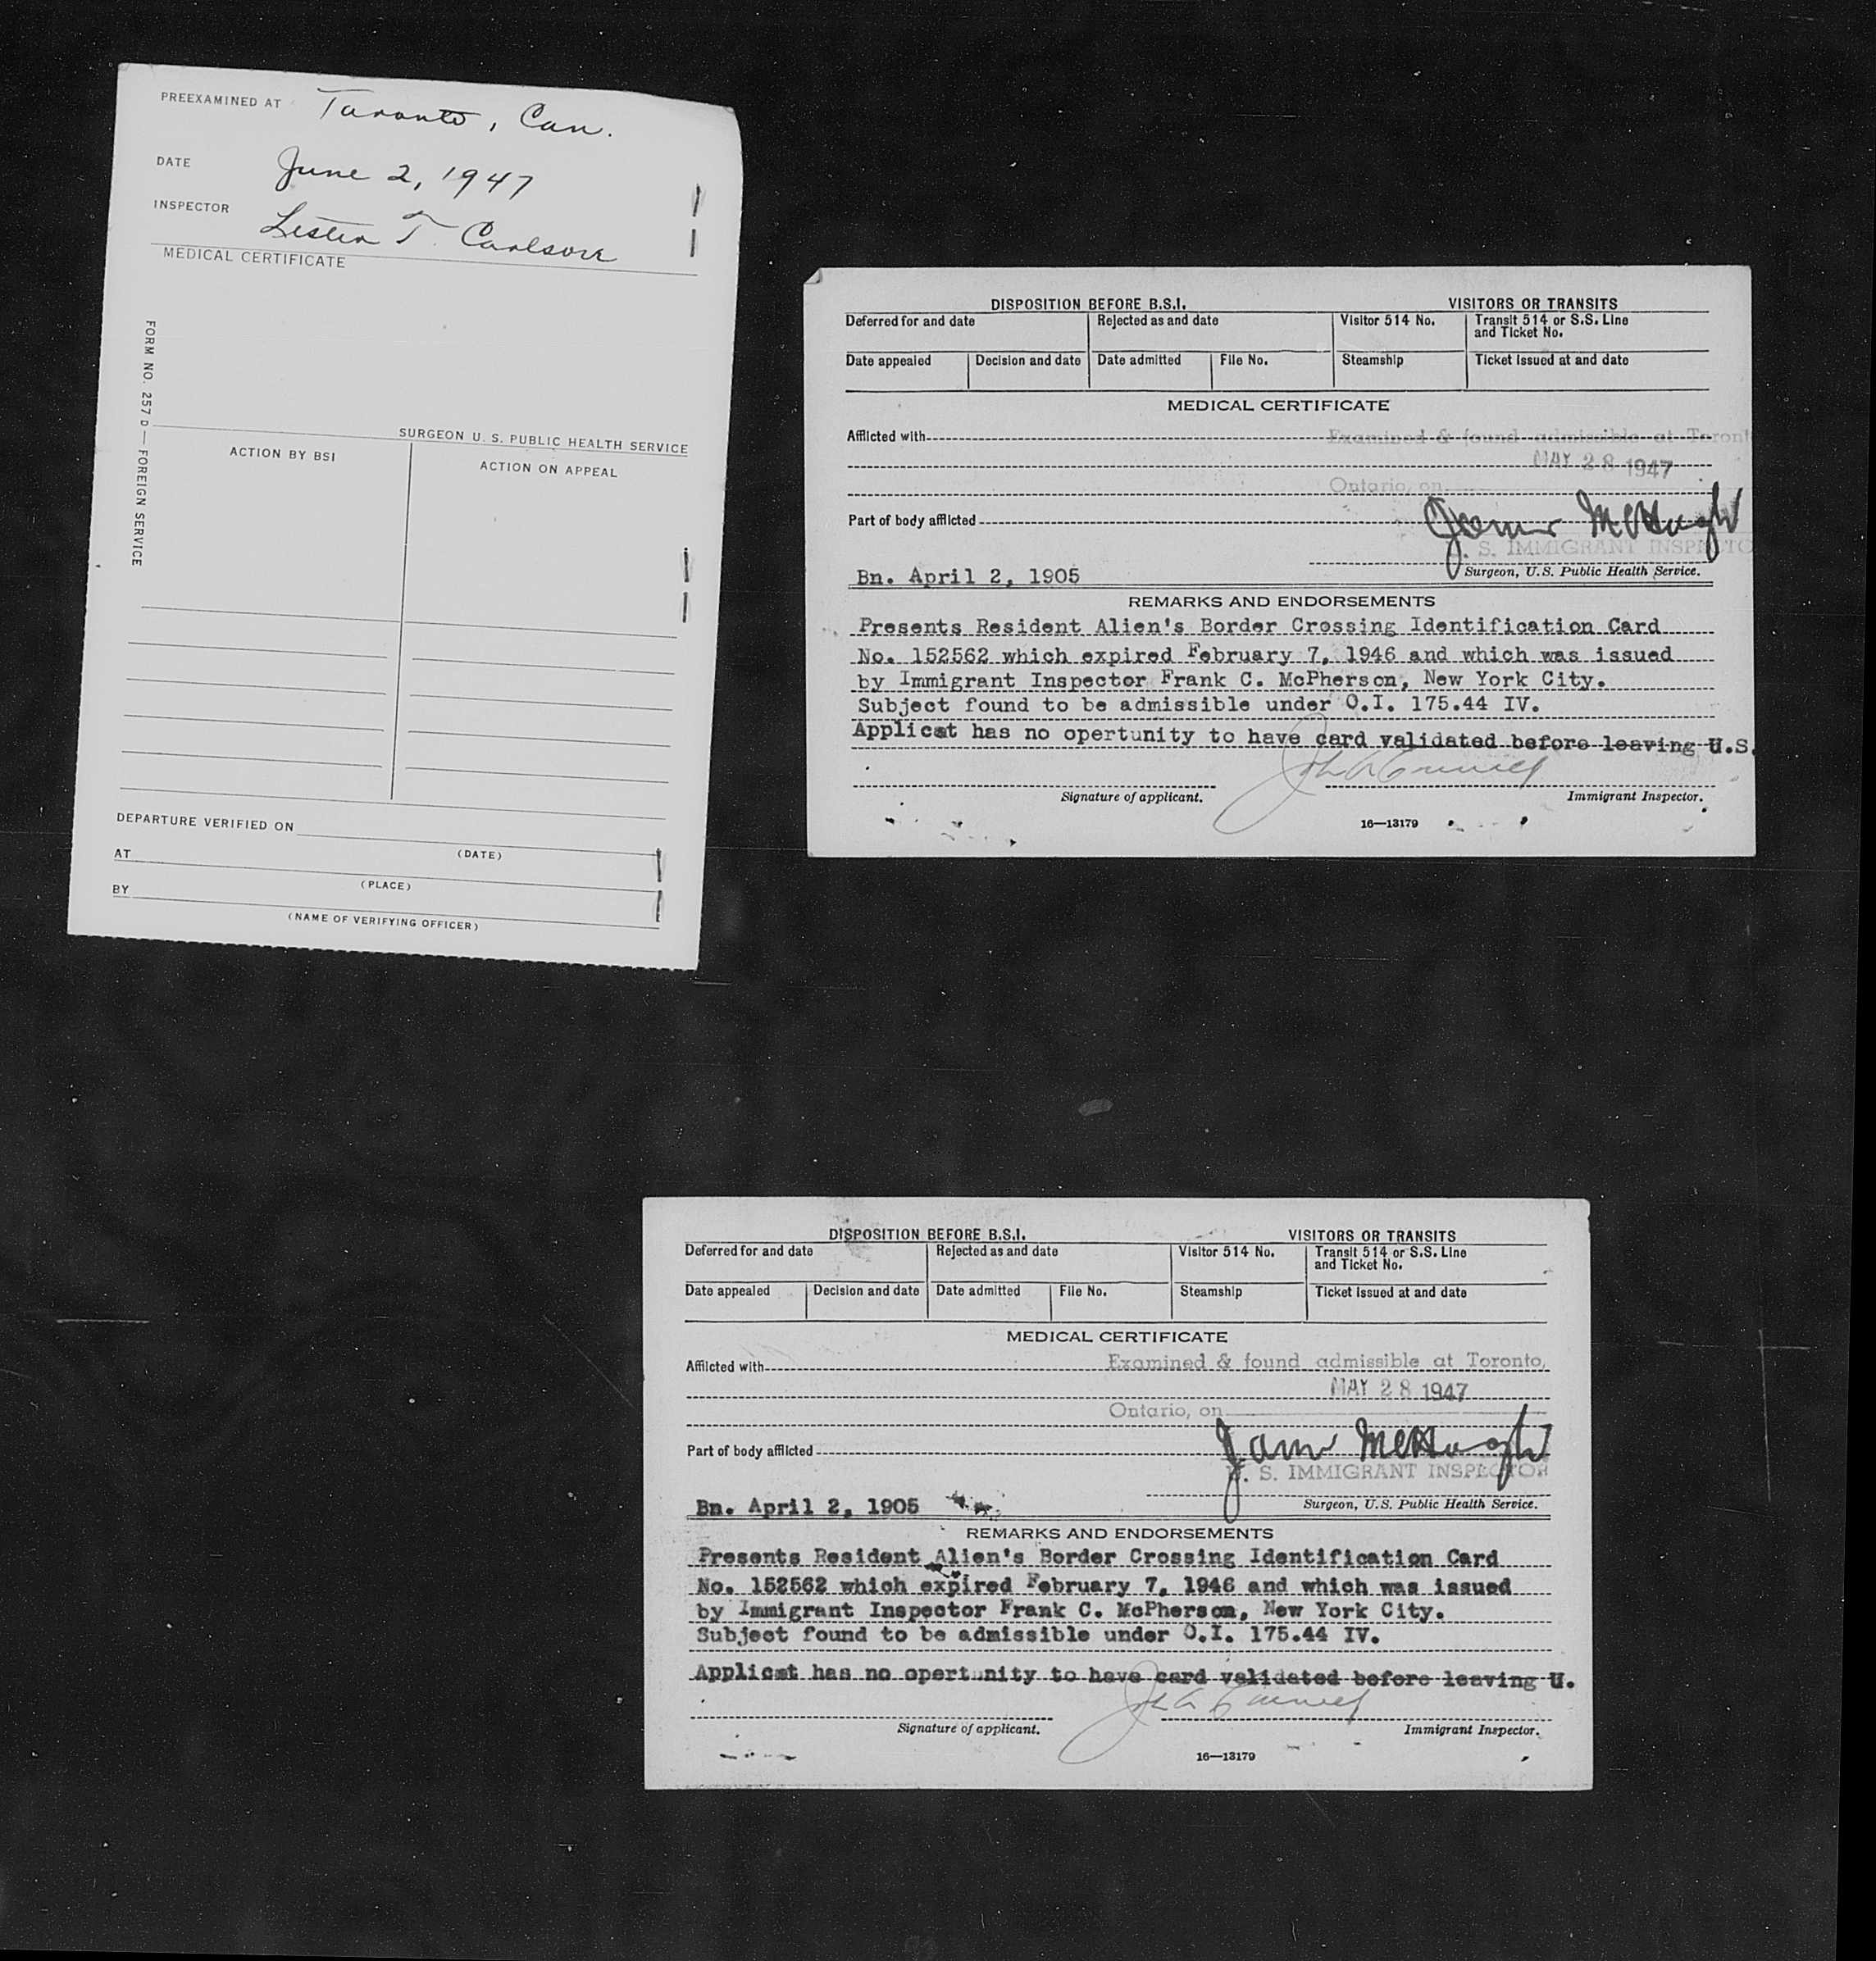 PREEXAMINED AT Toronto, Can.
DATE June 2, 1947
INSPECTOR Lester T. Carlson
MEDICAL CERTIFICATE
FORM NO. 257 D — FOREIGN SERVICE
SURGEON U. S. PUBLIC HEALTH SERVICE
ACTION BY BSI ACTION ON APPEAL
DEPARTURE VERIFIED ON
(DATE)
AT
(PLACE)
BY
(NAME OF VERIFYING OFFICER)
DISPOSITION BEFORE B.S.I. VISITORS OR TRANSITS
Deferred for and date Rejected as and date Visitor 514 No. Transit 514 or S.S. Line
and Ticket No.
Date appealed Decision and date Date admitted File No. Steamship Ticket issued at and date
MEDICAL CERTIFICATE
Afflicted with Examined & found admissible at Toront
MAY 28 1947
Ontario, on
Part of body afflicted James McHugh
U. S. IMMIGRANT INSPECTO
Surgeon, U.S. Public Health Service.
Bn. April 2, 1905
REMARKS AND ENDORSEMENTS
Presents Resident Alien's Border Crossing Identification Card
No. 152562 which expired February 7, 1946 and which was issued
by Immigrant Inspector Frank C. McPherson, New York City.
Subject found to be admissible under O.I. 175.44 IV.
Applicat has no opertunity to have card validated before leaving U.S.
Signature of applicant. Immigrant Inspector.
16—13179
DISPOSITION BEFORE B.S.I. VISITORS OR TRANSITS
Deferred for and date Rejected as and date Visitor 514 No. Transit 514 or S.S. Line
and Ticket No.
Date appealed Decision and date Date admitted File No. Steamship Ticket issued at and date
MEDICAL CERTIFICATE
Afflicted with Examined & found admissible at Toronto,
MAY 28 1947
Ontario, on
Part of body afflicted James McHugh
U. S. IMMIGRANT INSPECTOR
Surgeon, U.S. Public Health Service.
Bn. April 2, 1905
REMARKS AND ENDORSEMENTS
Presents Resident Alien's Border Crossing Identification Card
No. 152562 which expired February 7, 1946 and which was issued
by Immigrant Inspector Frank C. McPherson, New York City.
Subject found to be admissible under O.I. 175.44 IV.
Applicat has no opertunity to have card validated before leaving U.
Signature of applicant. Immigrant Inspector.
16—13179